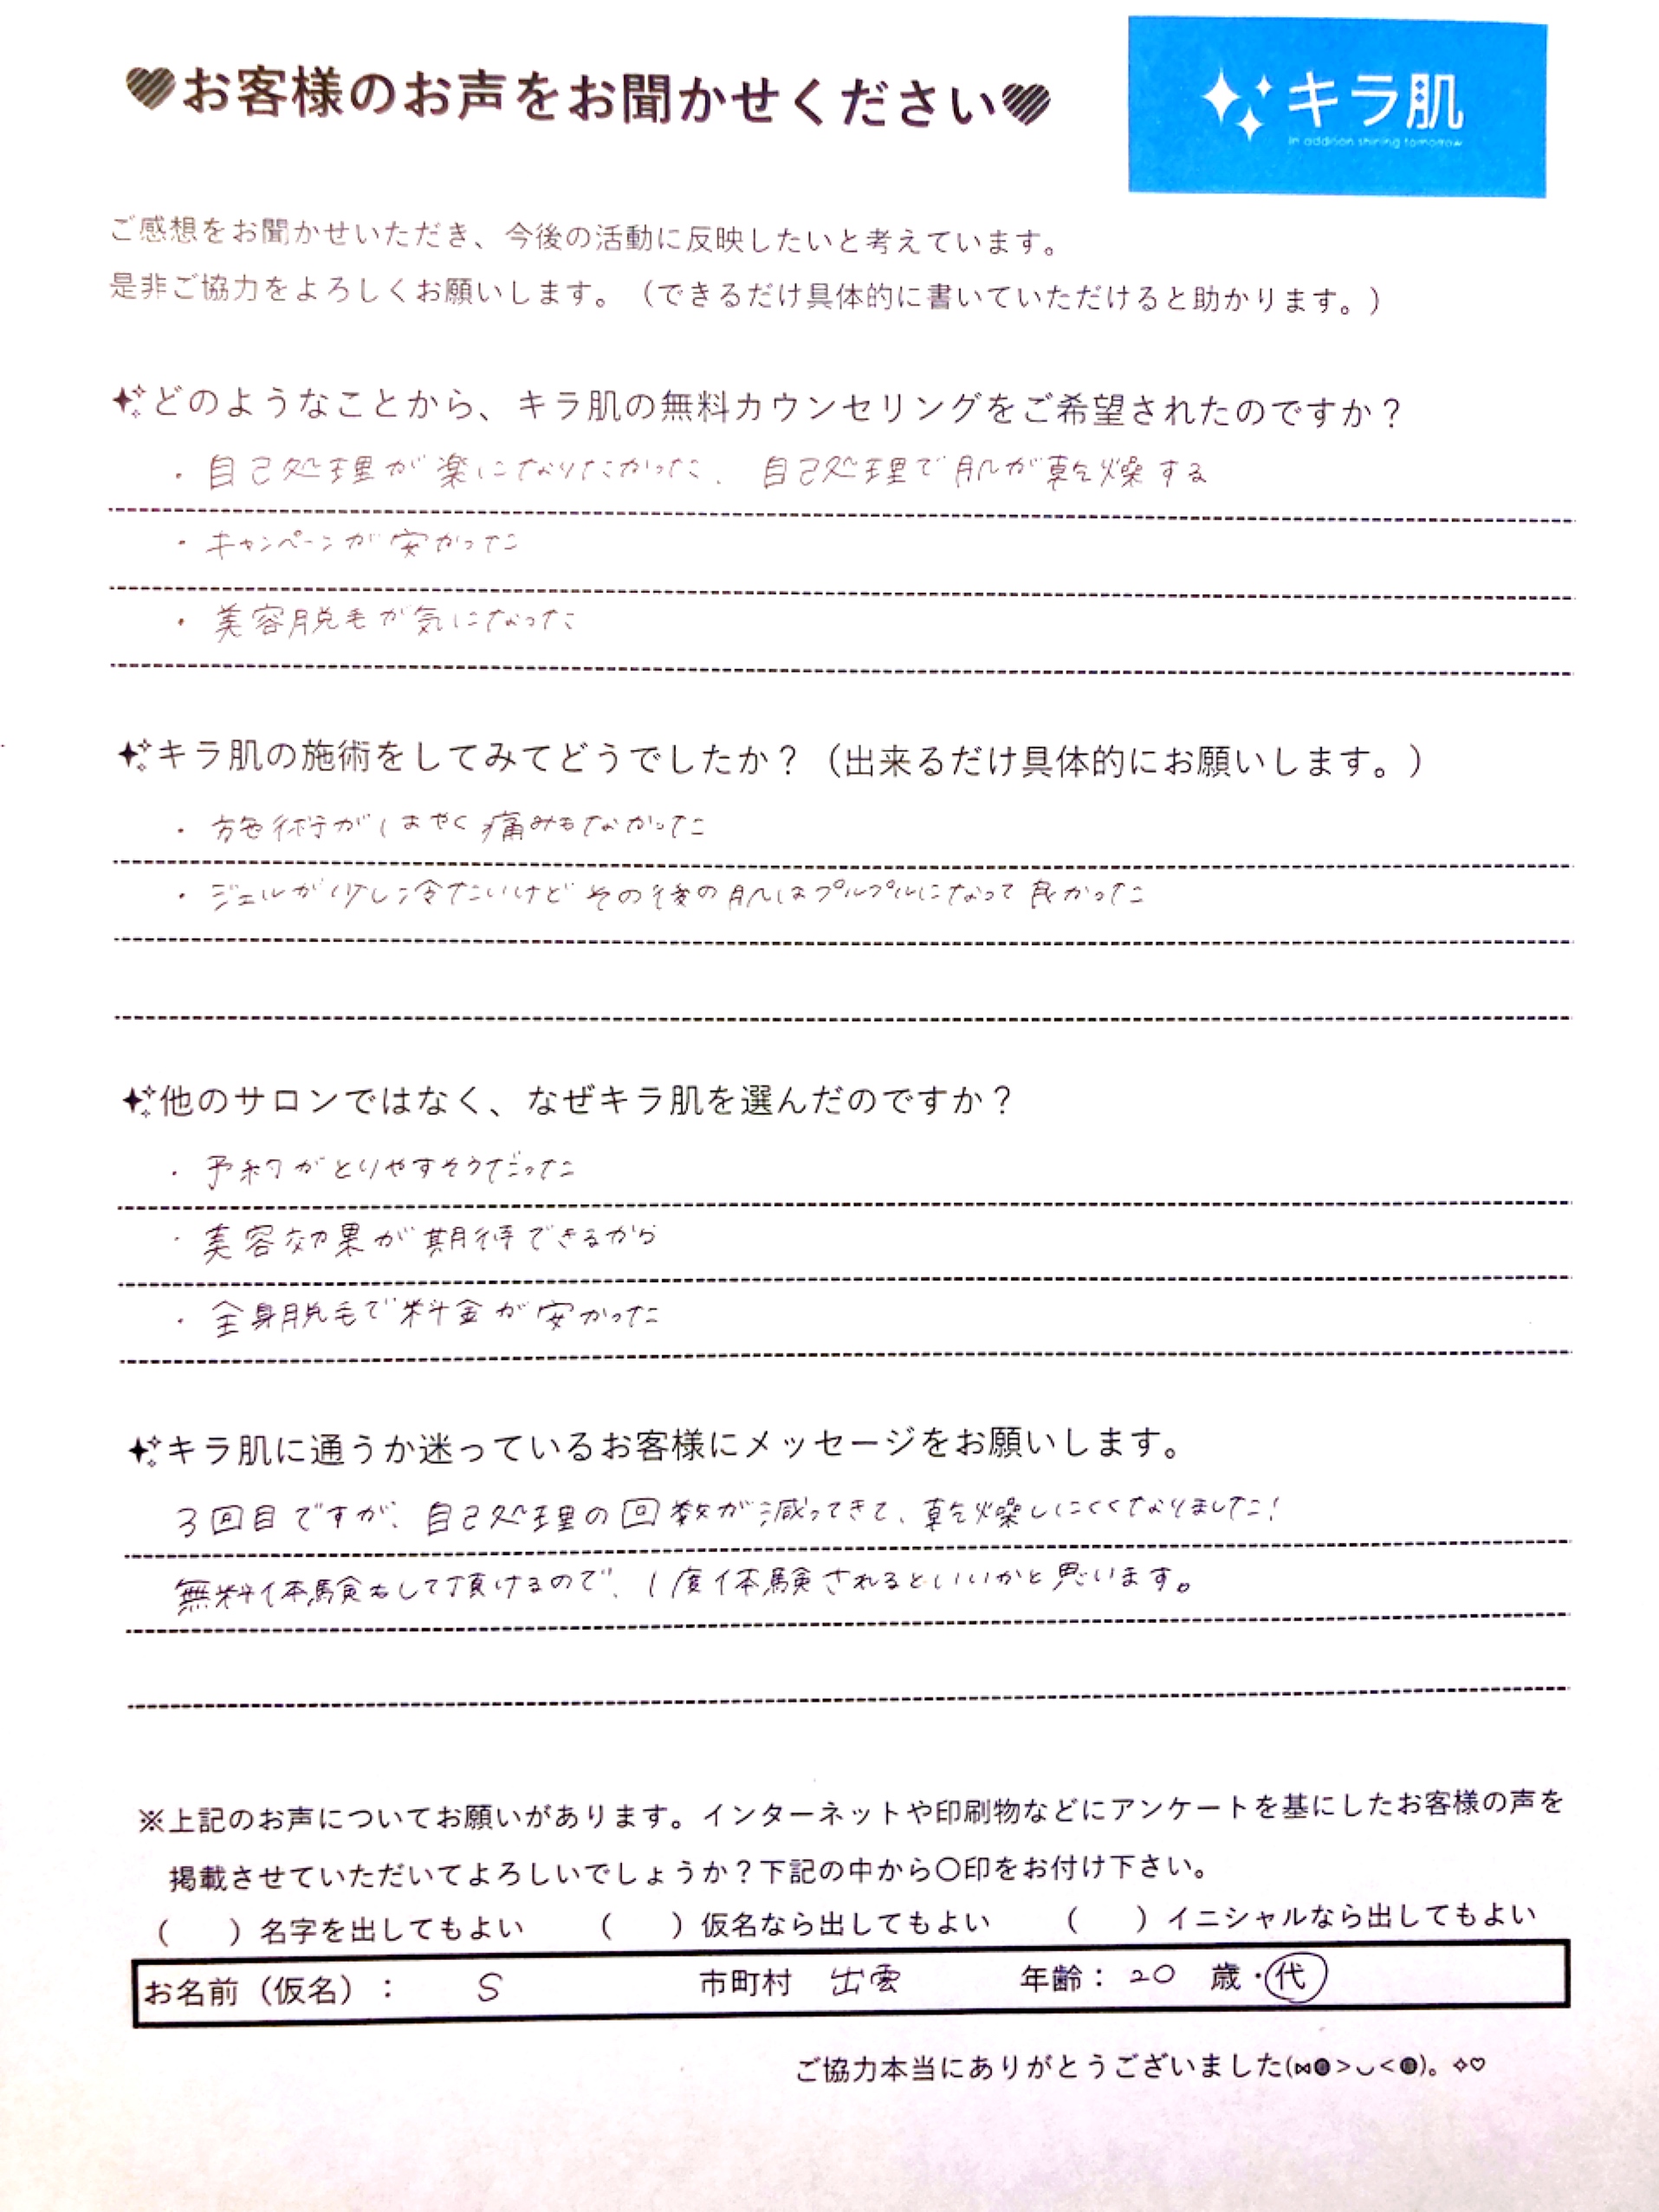 ♥お客様のお声をお聞かせください♥
キラ肌
in addition shining tomorrow
ご感想をお聞かせいただき、今後の活動に反映したいと考えています。
是非ご協力をよろしくお願いします。（できるだけ具体的に書いていただけると助かります。）
どのようなことから、キラ肌の無料カウンセリングをご希望されたのですか？
・自己処理が楽になりたかった、自己処理で肌が乾燥する
・キャンペーンが安かった
・美容脱毛が気になった
キラ肌の施術をしてみてどうでしたか？（出来るだけ具体的にお願いします。）
・施術がはやく痛みもなかった
・ジェルが少し冷たいけどその後の肌はプルプルになって良かった
他のサロンではなく、なぜキラ肌を選んだのですか？
・予約がとりやすそうだった
・美容効果が期待できるから
・全身脱毛で料金が安かった
キラ肌に通うか迷っているお客様にメッセージをお願いします。
3回目ですが、自己処理の回数が減ってきて、乾燥しにくくなりました！
無料体験もして頂けるので、1度体験されるといいかと思います。
※上記のお声についてお願いがあります。インターネットや印刷物などにアンケートを基にしたお客様の声を
掲載させていただいてよろしいでしょうか？下記の中から〇印をお付け下さい。
（　）名字を出してもよい　（　）仮名なら出してもよい　（　）イニシャルなら出してもよい
お名前（仮名）：　S　市町村　出雲　年齢：20　歳・代
ご協力本当にありがとうございました(⋈◍＞◡＜◍)。✧♡